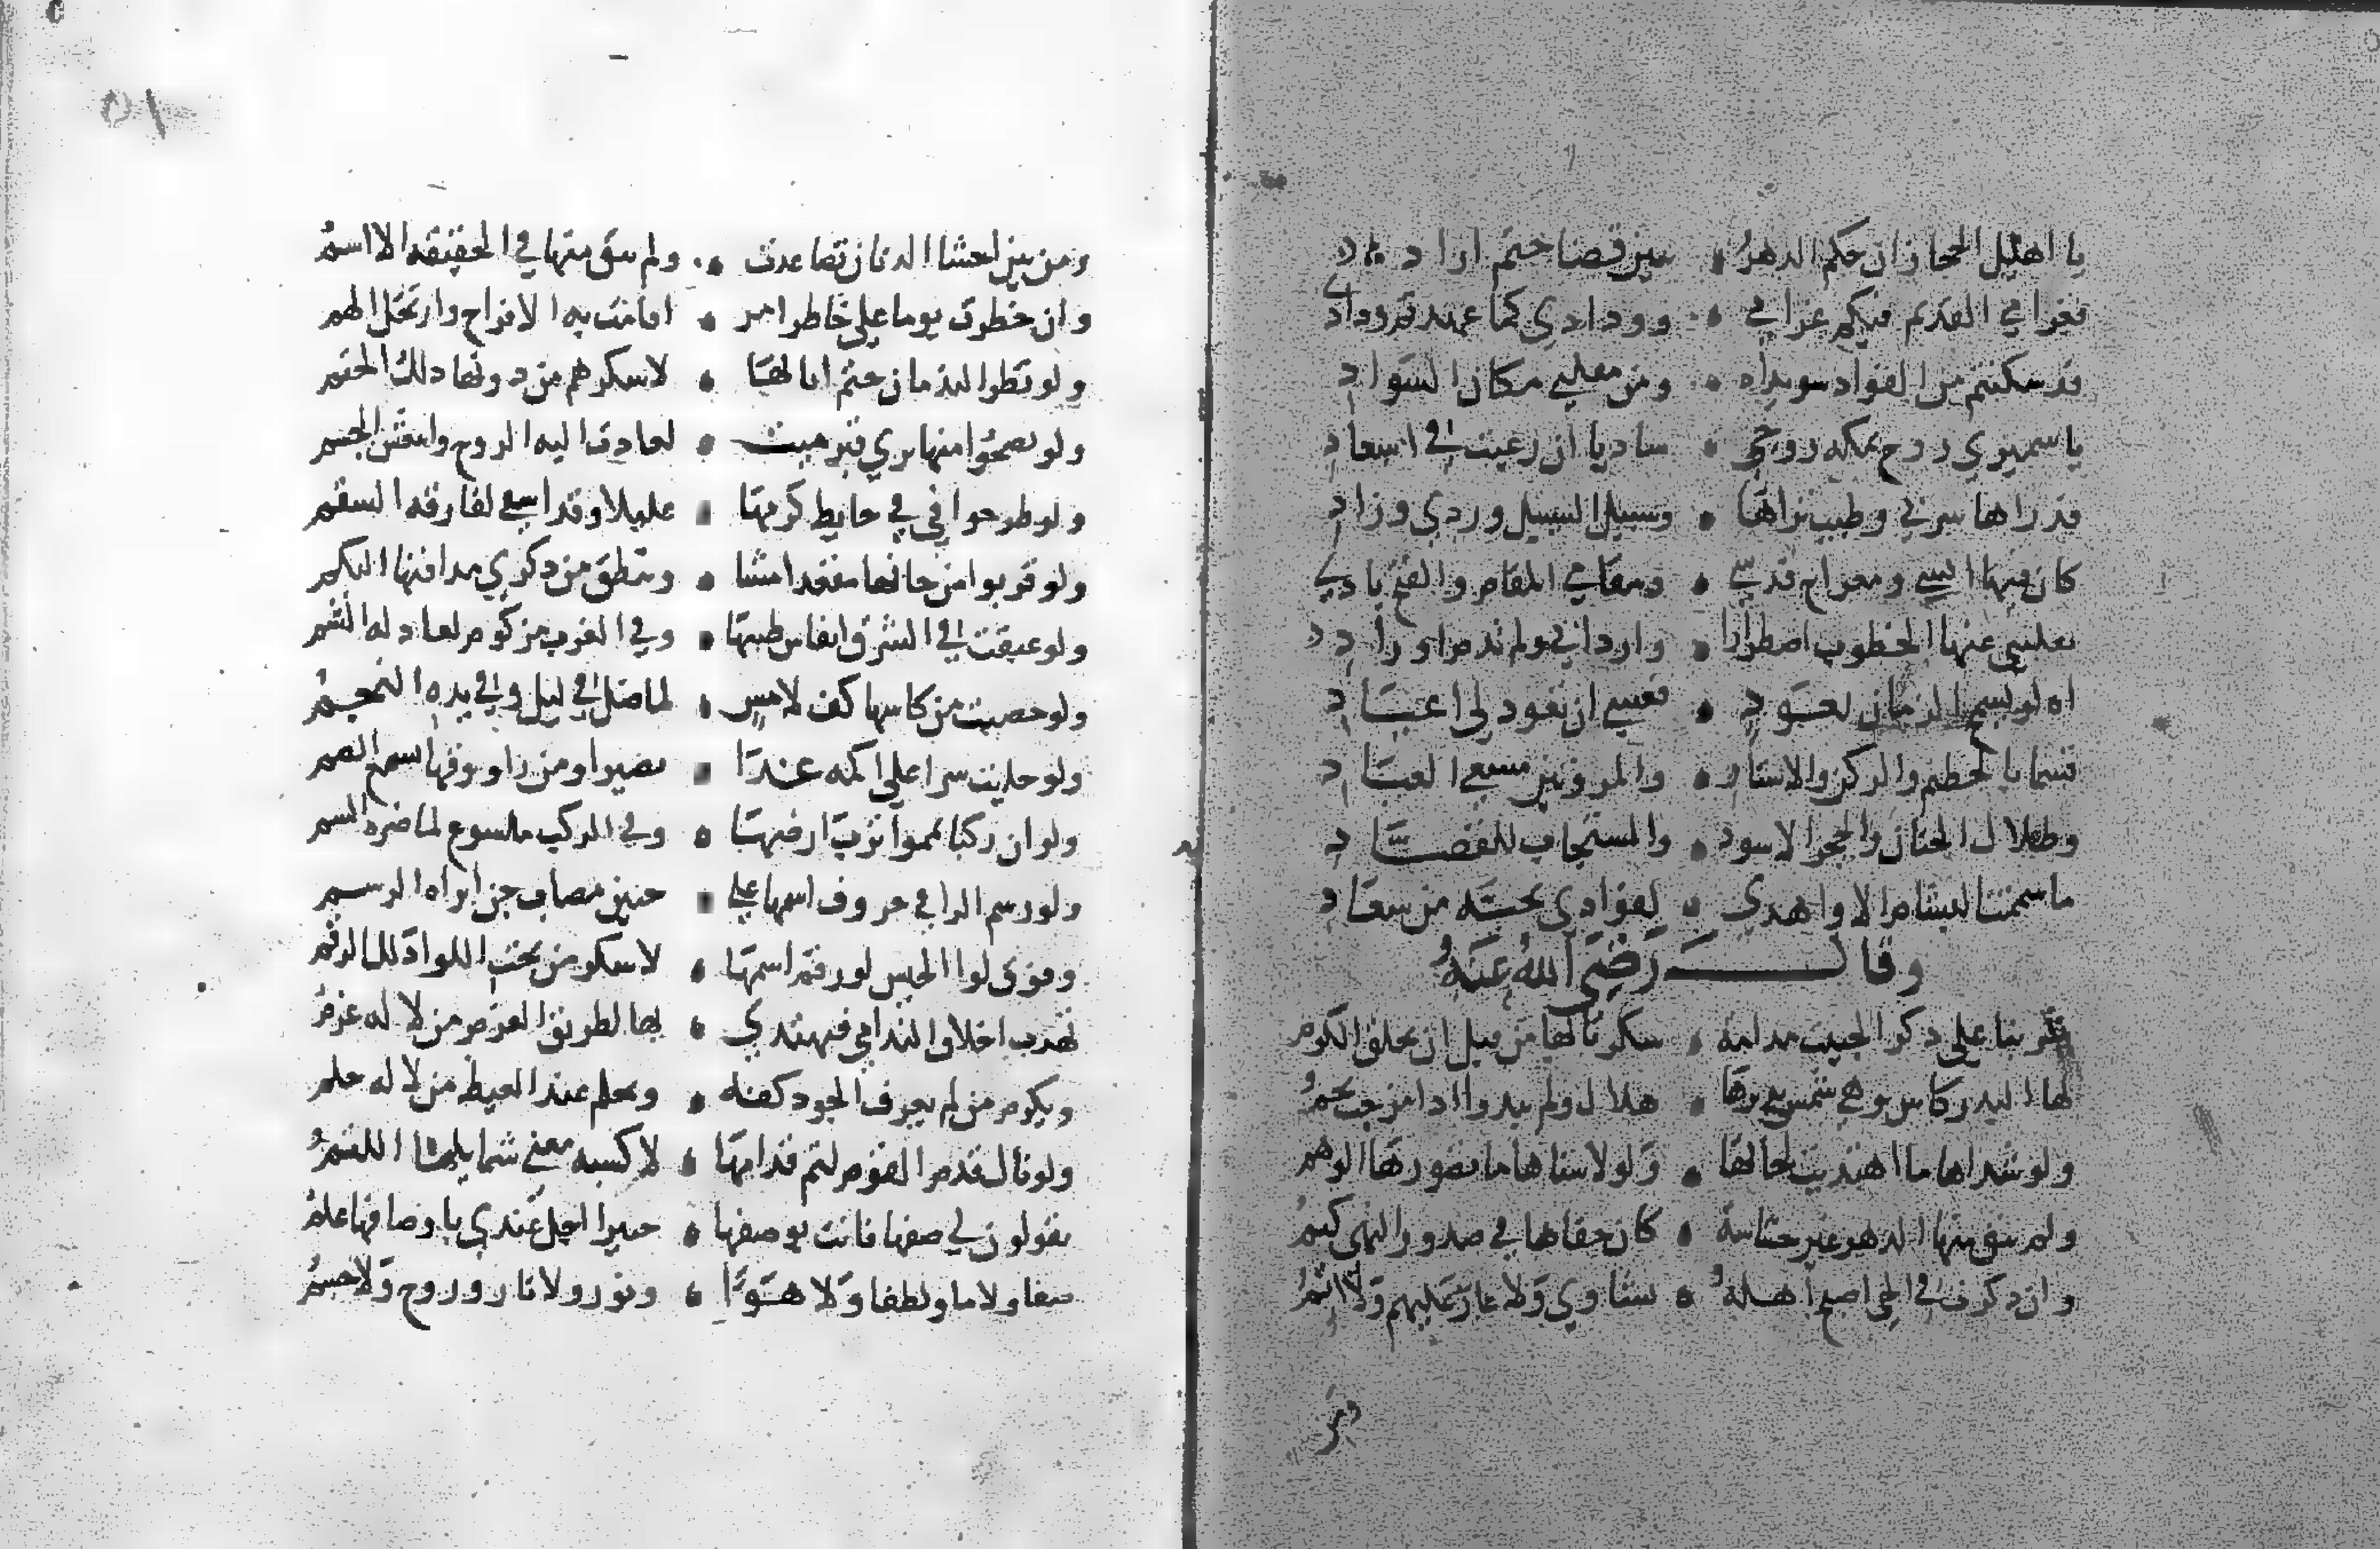 يا اهيل الحجاز ان حكم الدهر • ببين قضا حتم ارادي
فغرامي القديم فيكم غرامي • وودادي كما عهدتم ودادي
قد سكنتم من الفواد سويداه • ومن مقلتي مكان السواد
يا سميري روح بمكه روحي • شاديا ان رغبت في اسعادي
فذراها سربي وطيب ثراها • وسبيل السبيل وردي وزادي
كان فيها انسي ومعراج قدسي • ومقامي المقام والفتح بادي
نقلتني عنها الخطوب اضطرارا • وارداتي ولم تدم اورادي
اه لو يسمح الزمان بعود • فعسي ان تعود لي اعيادي
قسما بالحطيم والركن والاستار • والمروتين مسعي العباد
وظلال الجنان والحجر الاسود • والمستجاب للقصاد
ما شممت البشام الا واهدي • لفوادي تحية من سعاد
وقال رضي الله عنه
شربنا علي ذكر الحبيب مدامة • سكرنا بها من قبل ان يخلق الكرم
لها البدر كاس وهي شمس يديرها • هلال ولم يبدوا اذا مزجت نجم
ولو شداها ما اهتديت لحانها • ولولا سناها ما تصورها الوهم
ولم تبق منها الدهر غير حشاشة • كان خفاها في صدور النهي كتم
وان ذكرت في الحي اصبح اهله • نشاوي ولا عار عليهم ولا اثم
ومن
٥١
ومن بين احشا الدنان تصاعدت • ولم يبق منها في الحقيقه الا اسم
وان خطرت يوما علي خاطر امر • اقامت به الافراح وارتحل الهم
ولو نظر الندمان ختم انايها • لاسكرهم من دونها ذلك الختم
ولو نضحوا منها ثري قبر ميت • لعادت اليه الروح وانتعش الجسم
ولو طرحوا في في حايط كرمها • عليلا وقد اشفي لفارقه السقم
ولو قربوا من حانها مقعدا مشا • وتنطق من ذكري مداقتها البكم
ولو عبقت في الشرق انفاس طيبها • وفي الغرب مزكوم لعاد له الشم
ولو خضبت من كاسها كف لامس • لما ضل في ليل وفي يده النجم
ولو جليت سرا علي اكمه غدا • بصيرا ومن راووقها اسمع الصم
ولو ان ركبا يمموا ترب ارضها • وفي الركب ملسوع لما ضره السم
ولو رسم الراقي حروف اسمها علي • جبين مصاب جن ابراه الرسم
وفوق لوا الجيش لو رقم اسمها • لاسكر من تحت اللوا ذلك الرقم
تهذب اخلاق الندامي فيهتدي • بها لطريق العزم من لا له عزم
ويكرم من لم يعرف الجود كفه • ويحلم عند الغيظ من لا له حلم
ولو نال فدم القوم لثم فدامها • لاكسبه معني شمايلها اللثم
يقولون لي صفها فانت بوصفها • خبير اجل عندي باوصافها علم
صفا ولا ما ولطفا ولا هوا • ونور ولا نار وروح ولا جسم